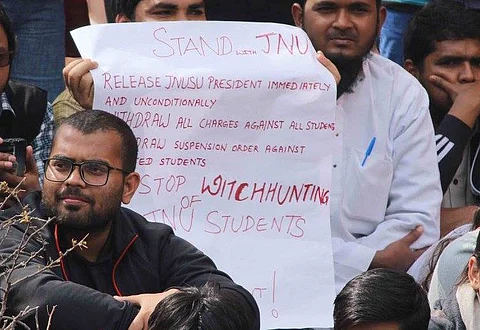 STAND WITH JNU
RELEASE JNUSU PRESIDENT IMMEDIATELY
AND UNCONDITIONALLY
HDRAW ALL CHARGES AGAINST ALL STUDEN
DRAW SUSPENSION ORDER AGAINST
ED STUDENTS
STOP WITCHHUNTING
OF
JNU STUDENTS
!